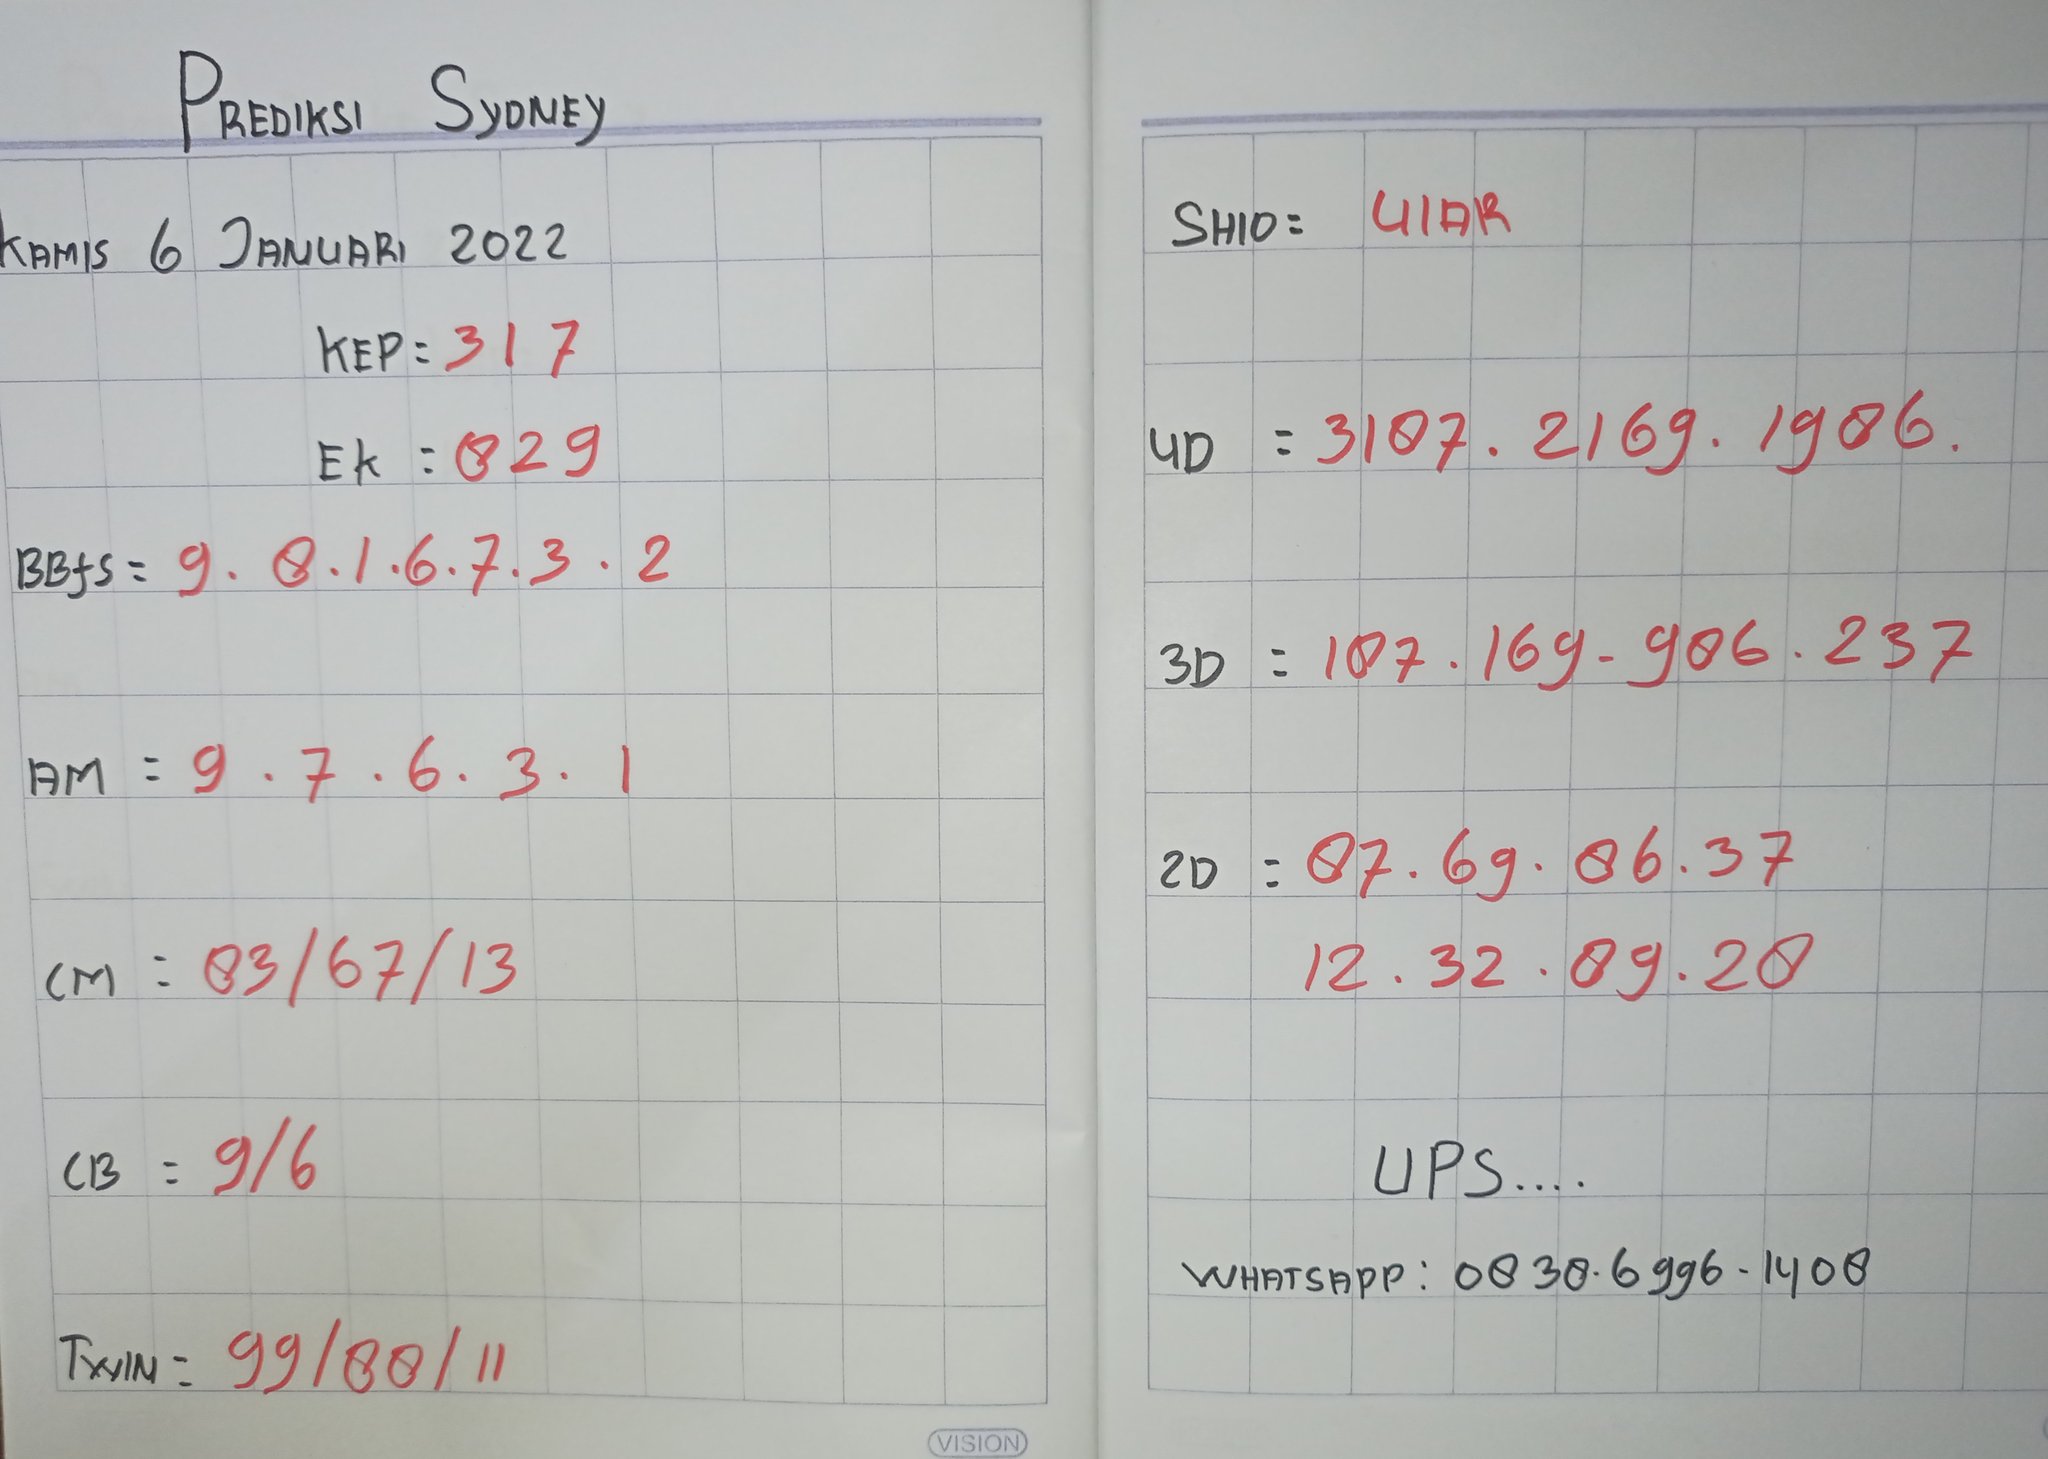 PREDIKSI SYDNEY
KAMIS 6 JANUARI 2022
KEP = 317
EK = 829
BBFS = 9.8.1.6.7.3.2
AM = 9.7.6.3.1
CM = 83/67/13
CB = 9/6
TWIN = 99/88/11
VISION
SHIO = UlAR
4D = 3187.2169.1986.
3D = 187.169-986.237
2D = 87.69.86.37
12.32.89.28
UPS....
WHATSAPP: 0838.6996-1408